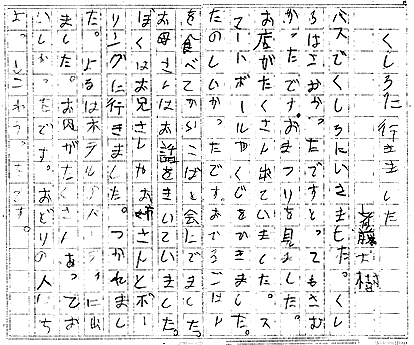 くしろに行きました
斉藤大樹
バスでくしろにいきました。くし
ろはさむかったですとってもさむ
かったです。おまつりを見ました。
お店がたくさん出ていました。ス
マートボールやくじをかきました。
たのしかったです。おひるごはん
を食べてからこばと会にでました。
お母さんはお話をきいていました。
ぼくはお兄さんやお姉さんとボー
リングに行きました。つかれまし
た。よるはホテルの
ました。お肉がたくさんあってお
いしかったです。おどりの人たち